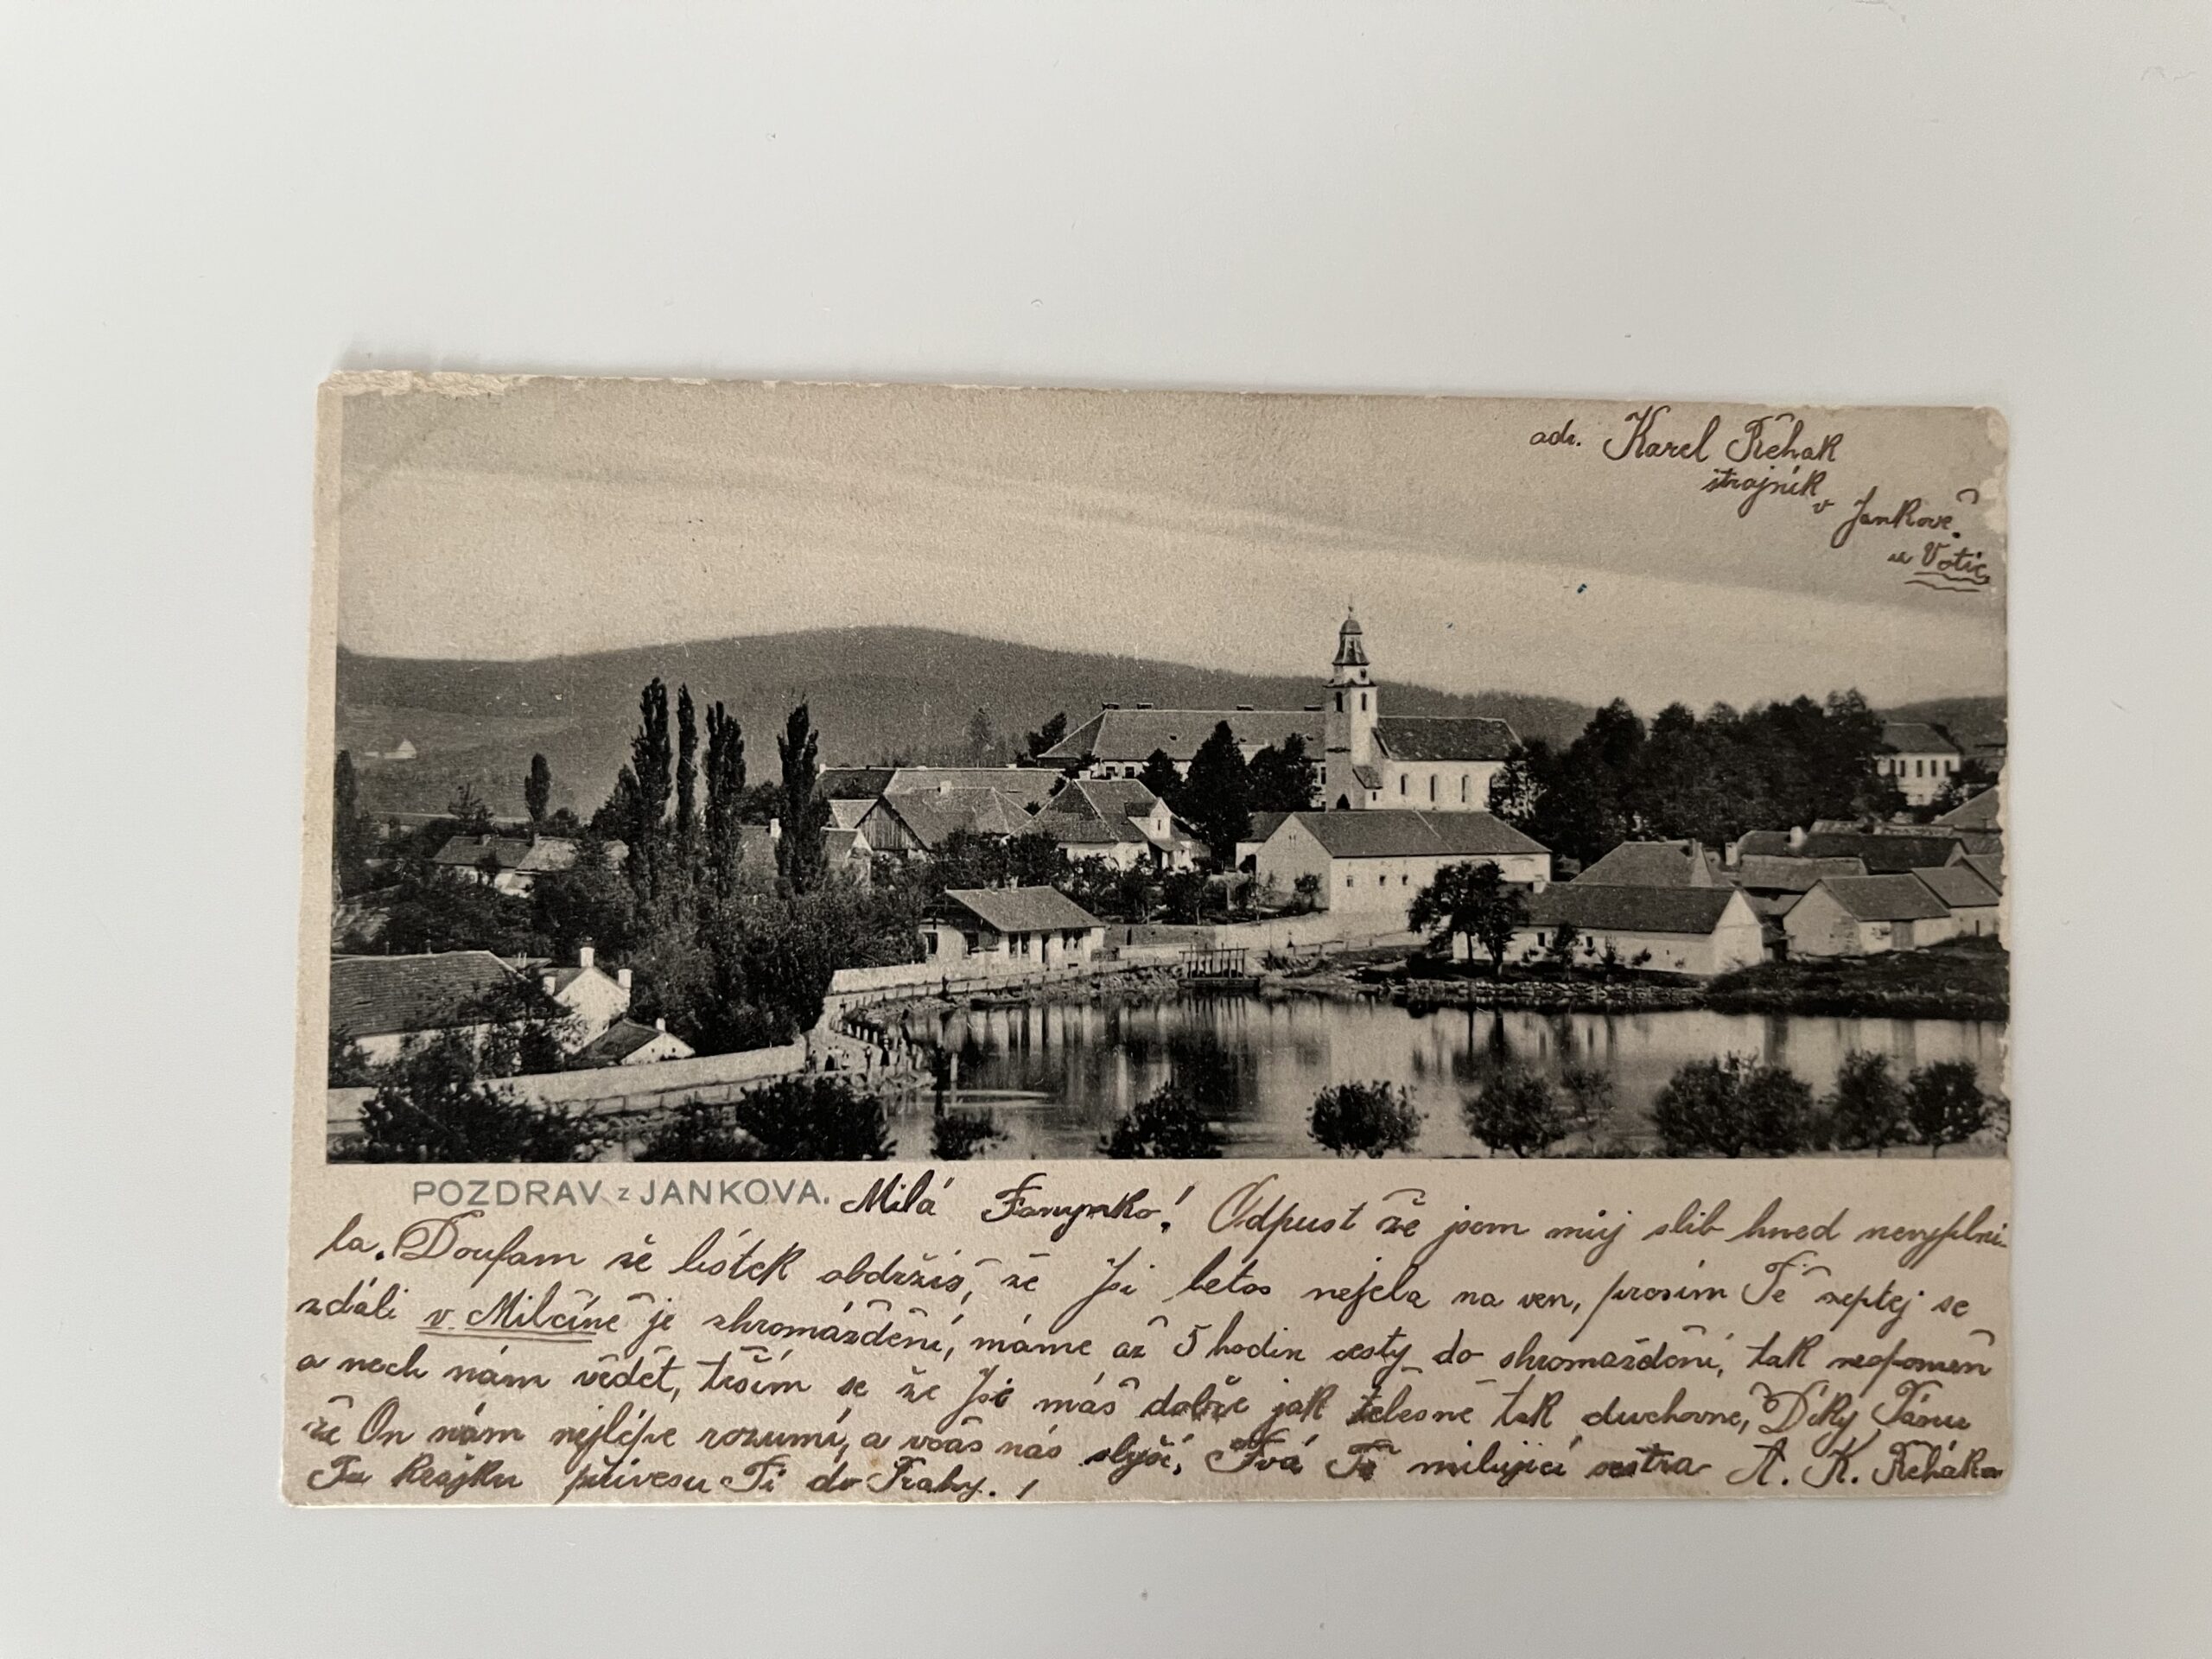 adr. Karel Řehak
strojník
v Jankově
u Votic
POZDRAV z JANKOVA. Milá Fanynko! Odpust že jsem můj slib hned nevyplni-
la. Doufam že lístek obdržíš, že Jsi letos nejela na ven, prosím Tě zeptej se
zdáli v Milčíně je shromáždění, máme až 5 hodin cesty do shromáždění, tak neopomeň
a nech nám vědět, těším se že Jsi máš dobře jak tělesně tak duchovne, Díky Pánu
že On nám nejlépe rozumí, a včas nás slyší, Tvá Tě milující sestra A. K. Řeháka
Tu krajku přivesu Ti do Prahy.